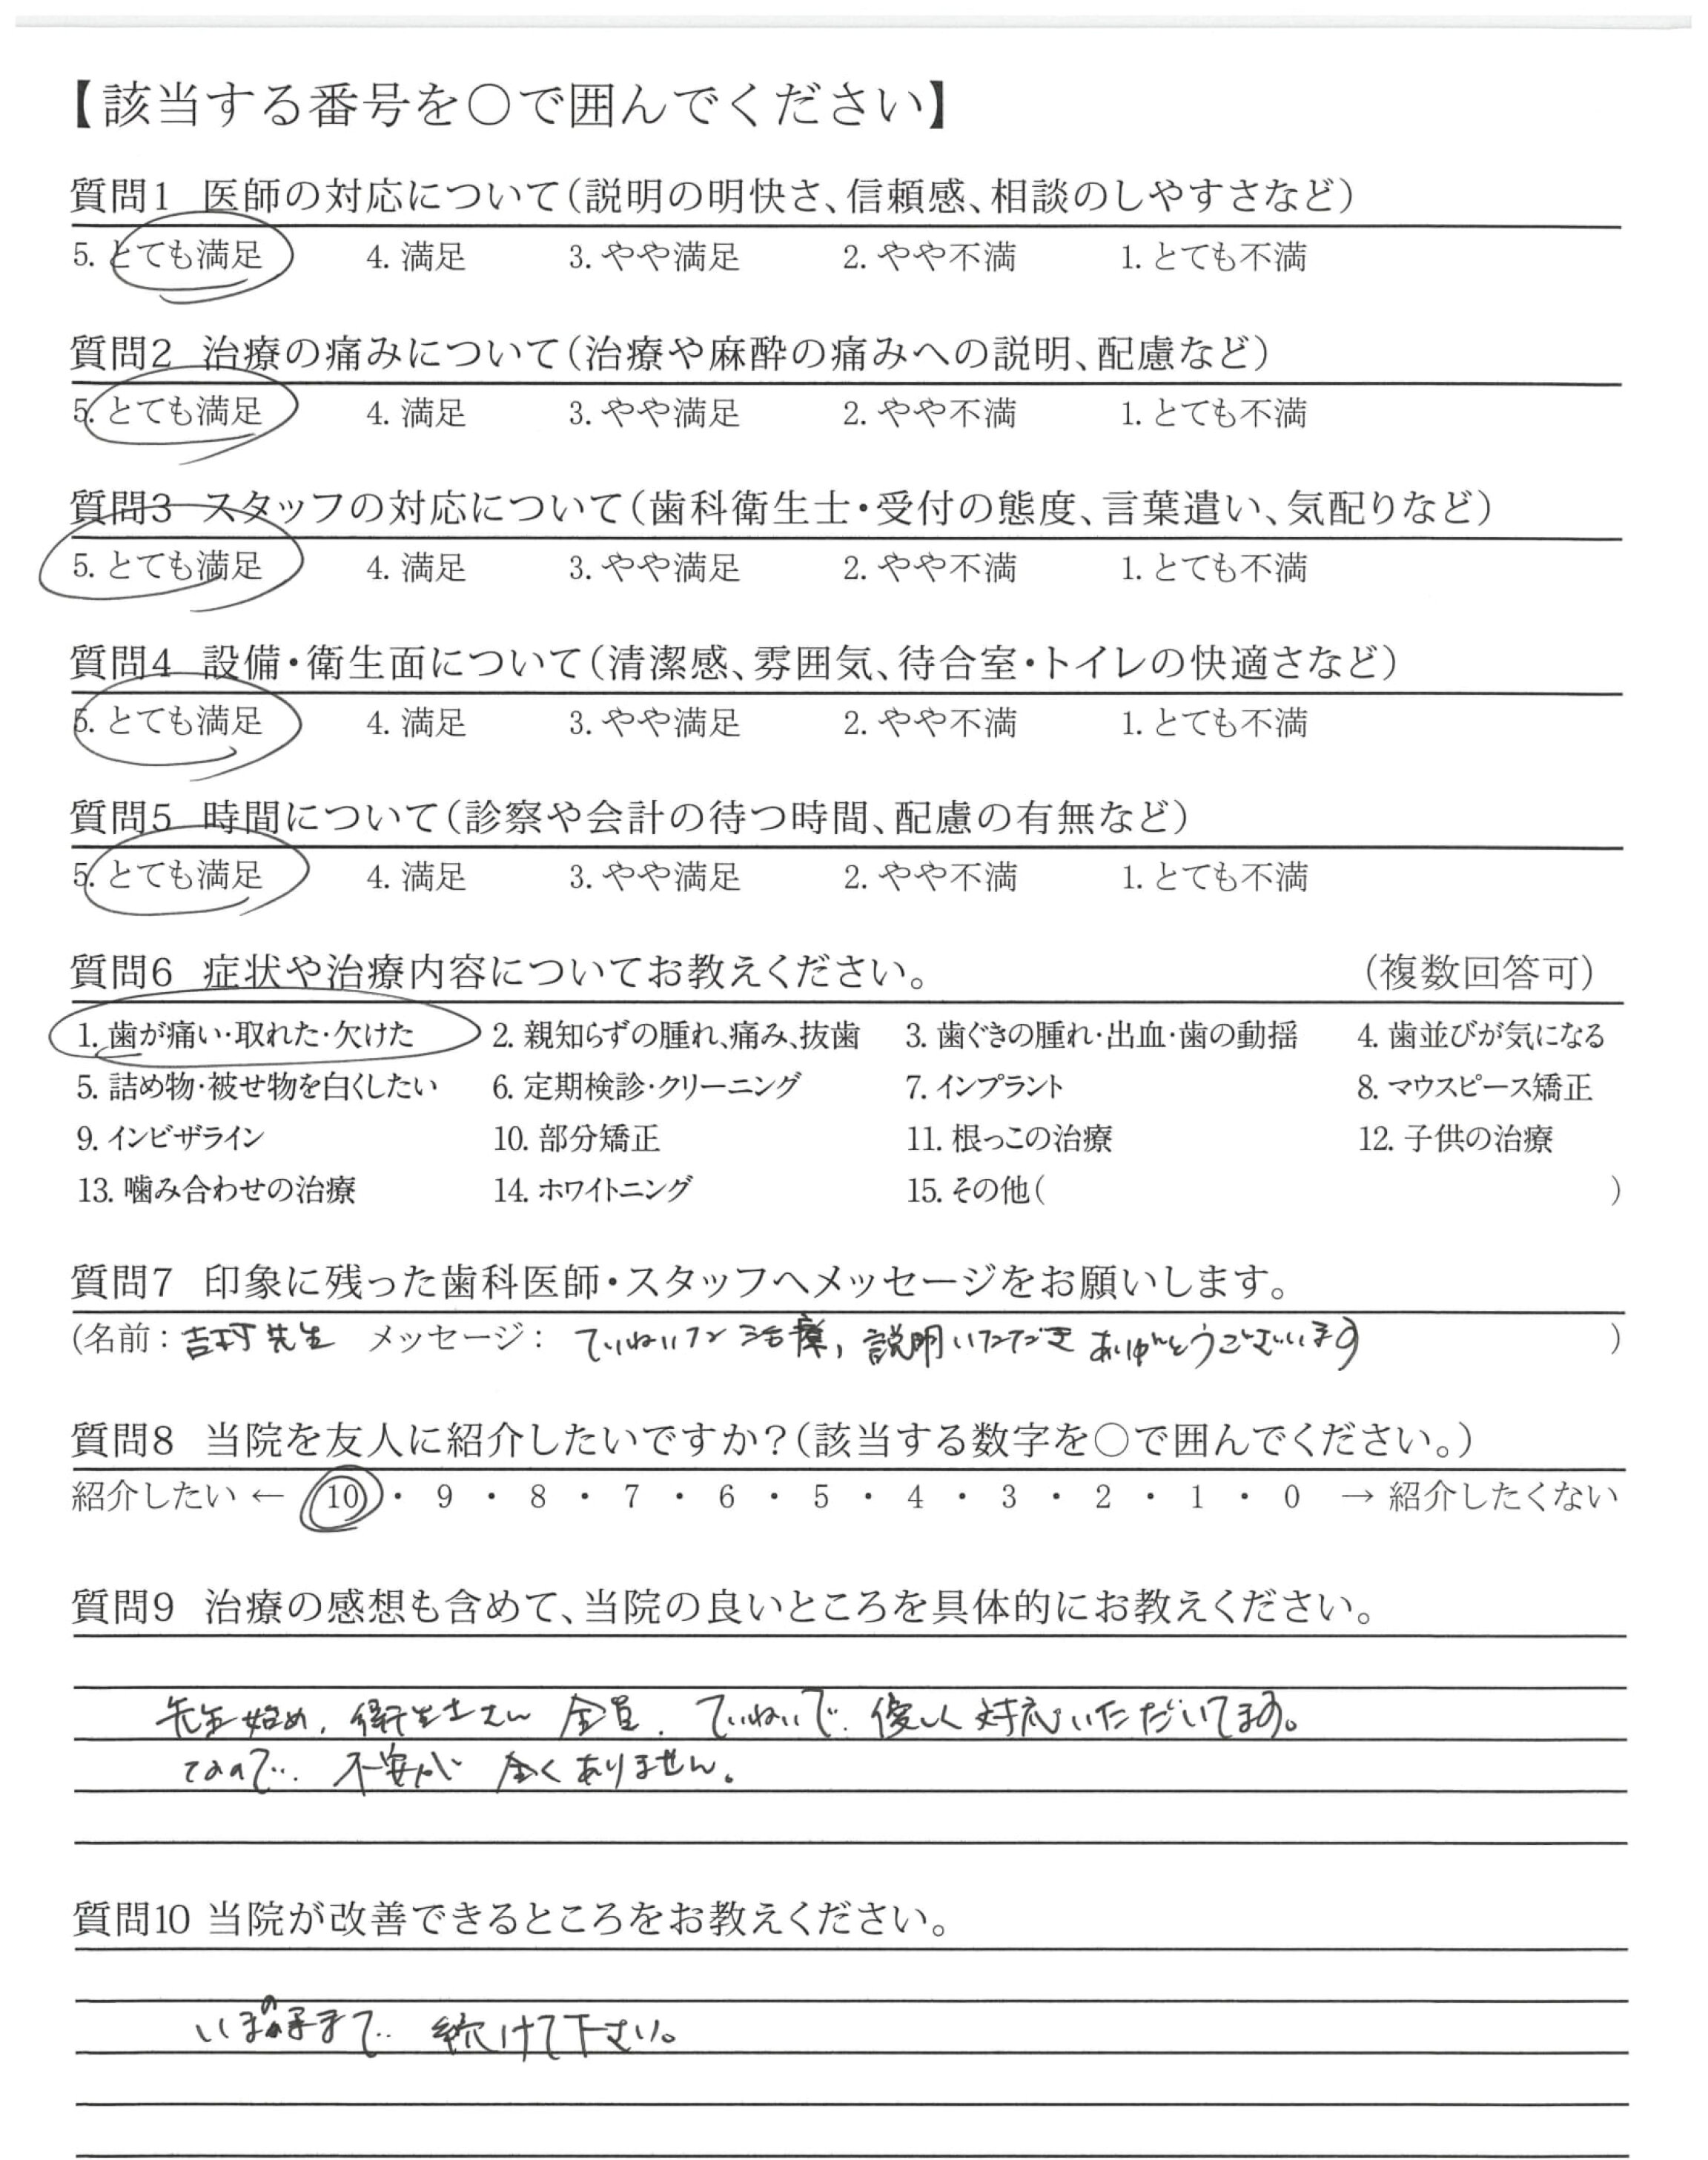 【該当する番号を○で囲んでください】
質問1 医師の対応について(説明の明快さ、信頼感、相談のしやすさなど)
5. とても満足 4. 満足 3. やや満足 2. やや不満 1. とても不満
質問2 治療の痛みについて(治療や麻酔の痛みへの説明、配慮など)
5. とても満足 4. 満足 3. やや満足 2. やや不満 1. とても不満
質問3 スタッフの対応について(歯科衛生士・受付の態度、言葉遣い、気配りなど)
5. とても満足 4. 満足 3. やや満足 2. やや不満 1. とても不満
質問4 設備・衛生面について(清潔感、雰囲気、待合室・トイレの快適さなど)
5. とても満足 4. 満足 3. やや満足 2. やや不満 1. とても不満
質問5 時間について(診察や会計の待つ時間、配慮の有無など)
5. とても満足 4. 満足 3. やや満足 2. やや不満 1. とても不満
質問6 症状や治療内容についてお教えください。 (複数回答可)
1. 歯が痛い・取れた・欠けた 2. 親知らずの腫れ、痛み、抜歯 3. 歯ぐきの腫れ・出血・歯の動揺 4. 歯並びが気になる
5. 詰め物・被せ物を白くしたい 6. 定期検診・クリーニング 7. インプラント 8. マウスピース矯正
9. インビザライン 10. 部分矯正 11. 根っこの治療 12. 子供の治療
13. 噛み合わせの治療 14. ホワイトニング 15. その他( )
質問7 印象に残った歯科医師・スタッフへメッセージをお願いします。
(名前：吉村先生 メッセージ： ていねいな治療、説明いただき ありがとうございます )
質問8 当院を友人に紹介したいですか？(該当する数字を○で囲んでください。)
紹介したい ← 10 ・ 9 ・ 8 ・ 7 ・ 6 ・ 5 ・ 4 ・ 3 ・ 2 ・ 1 ・ 0 → 紹介したくない
質問9 治療の感想も含めて、当院の良いところを具体的にお教えください。
先生始め、衛生士さん 全員、ていねいで 優しく対応いただいてます。
なので 不安が 全くありません。
質問10 当院が改善できるところをお教えください。
いまのままで 続けて下さい。